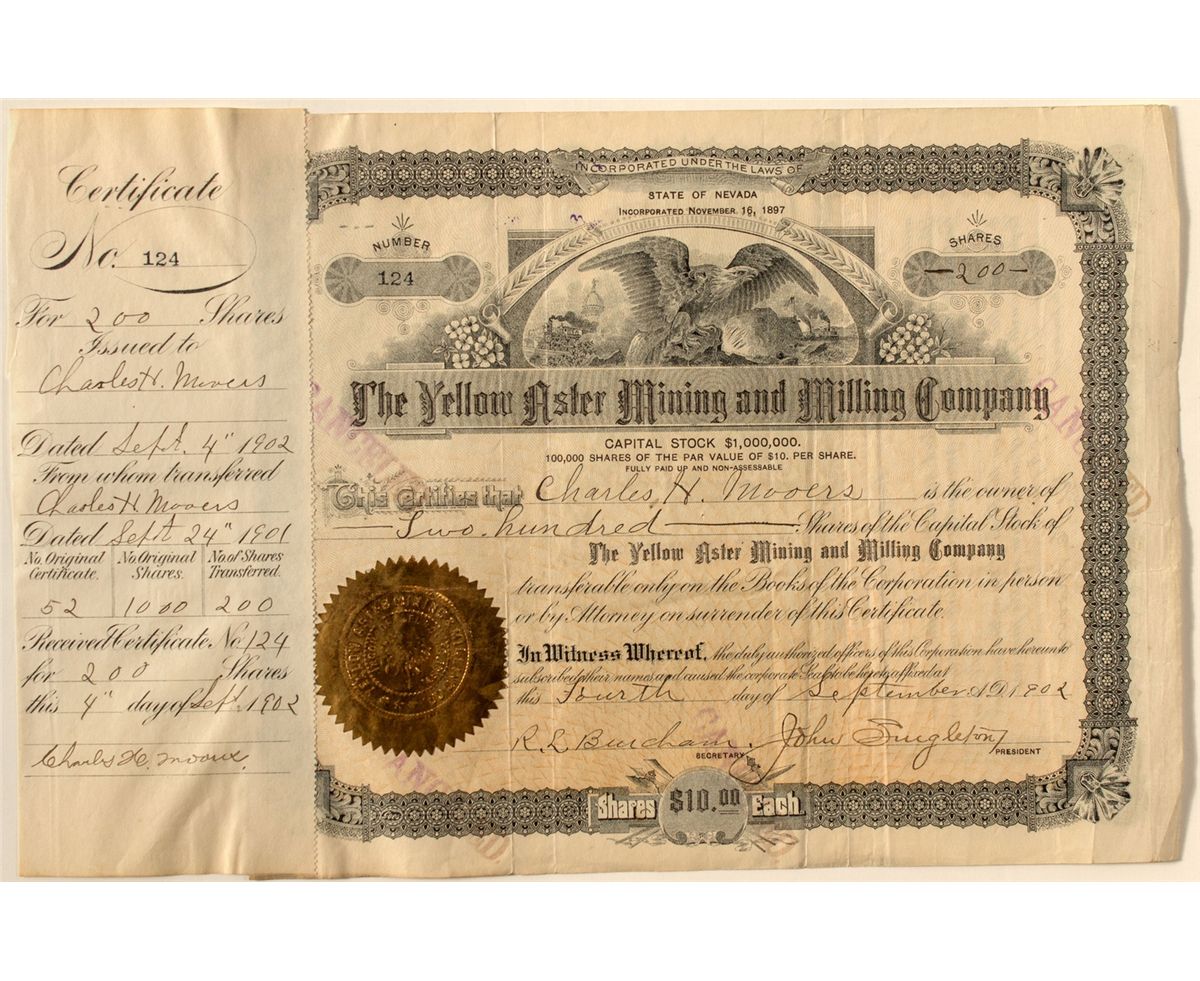 Certificate
No. 124
For 200 Shares
Issued to
Charles H. Mooers
Dated Sept. 4" 1902
From whom transferred
Charles H. Mooers
Dated Sept 24" 1901
No. Original Certificate. No. Original Shares. No. of Shares Transferred.
52 1000 200
Received Certificate No. 124
for 200 Shares
this 4" day of Sept. 1902
Charles H. Mooers.
INCORPORATED UNDER THE LAWS OF
STATE OF NEVADA
INCORPORATED NOVEMBER 16, 1897
NUMBER
124
SHARES
—200—
The Yellow Aster Mining and Milling Company
CAPITAL STOCK $1,000,000.
100,000 SHARES OF THE PAR VALUE OF $10. PER SHARE.
FULLY PAID UP AND NON-ASSESSABLE
This Certifies that Charles H. Mooers is the owner of
Two hundred Shares of the Capital Stock of
The Yellow Aster Mining and Milling Company
transferable only on the Books of the Corporation in person
or by Attorney on surrender of this Certificate.
In Witness Whereof, the duly authorized officers of this Corporation have hereunto
subscribed their names and caused the corporate Seal to be hereto affixed at
this Fourth day of September A.D. 1902
R. L. Burcham. John Singleton
SECRETARY PRESIDENT
Shares $10.00 Each.
CANCELLED
CANCELLED
CANCELLED
CANCELLED